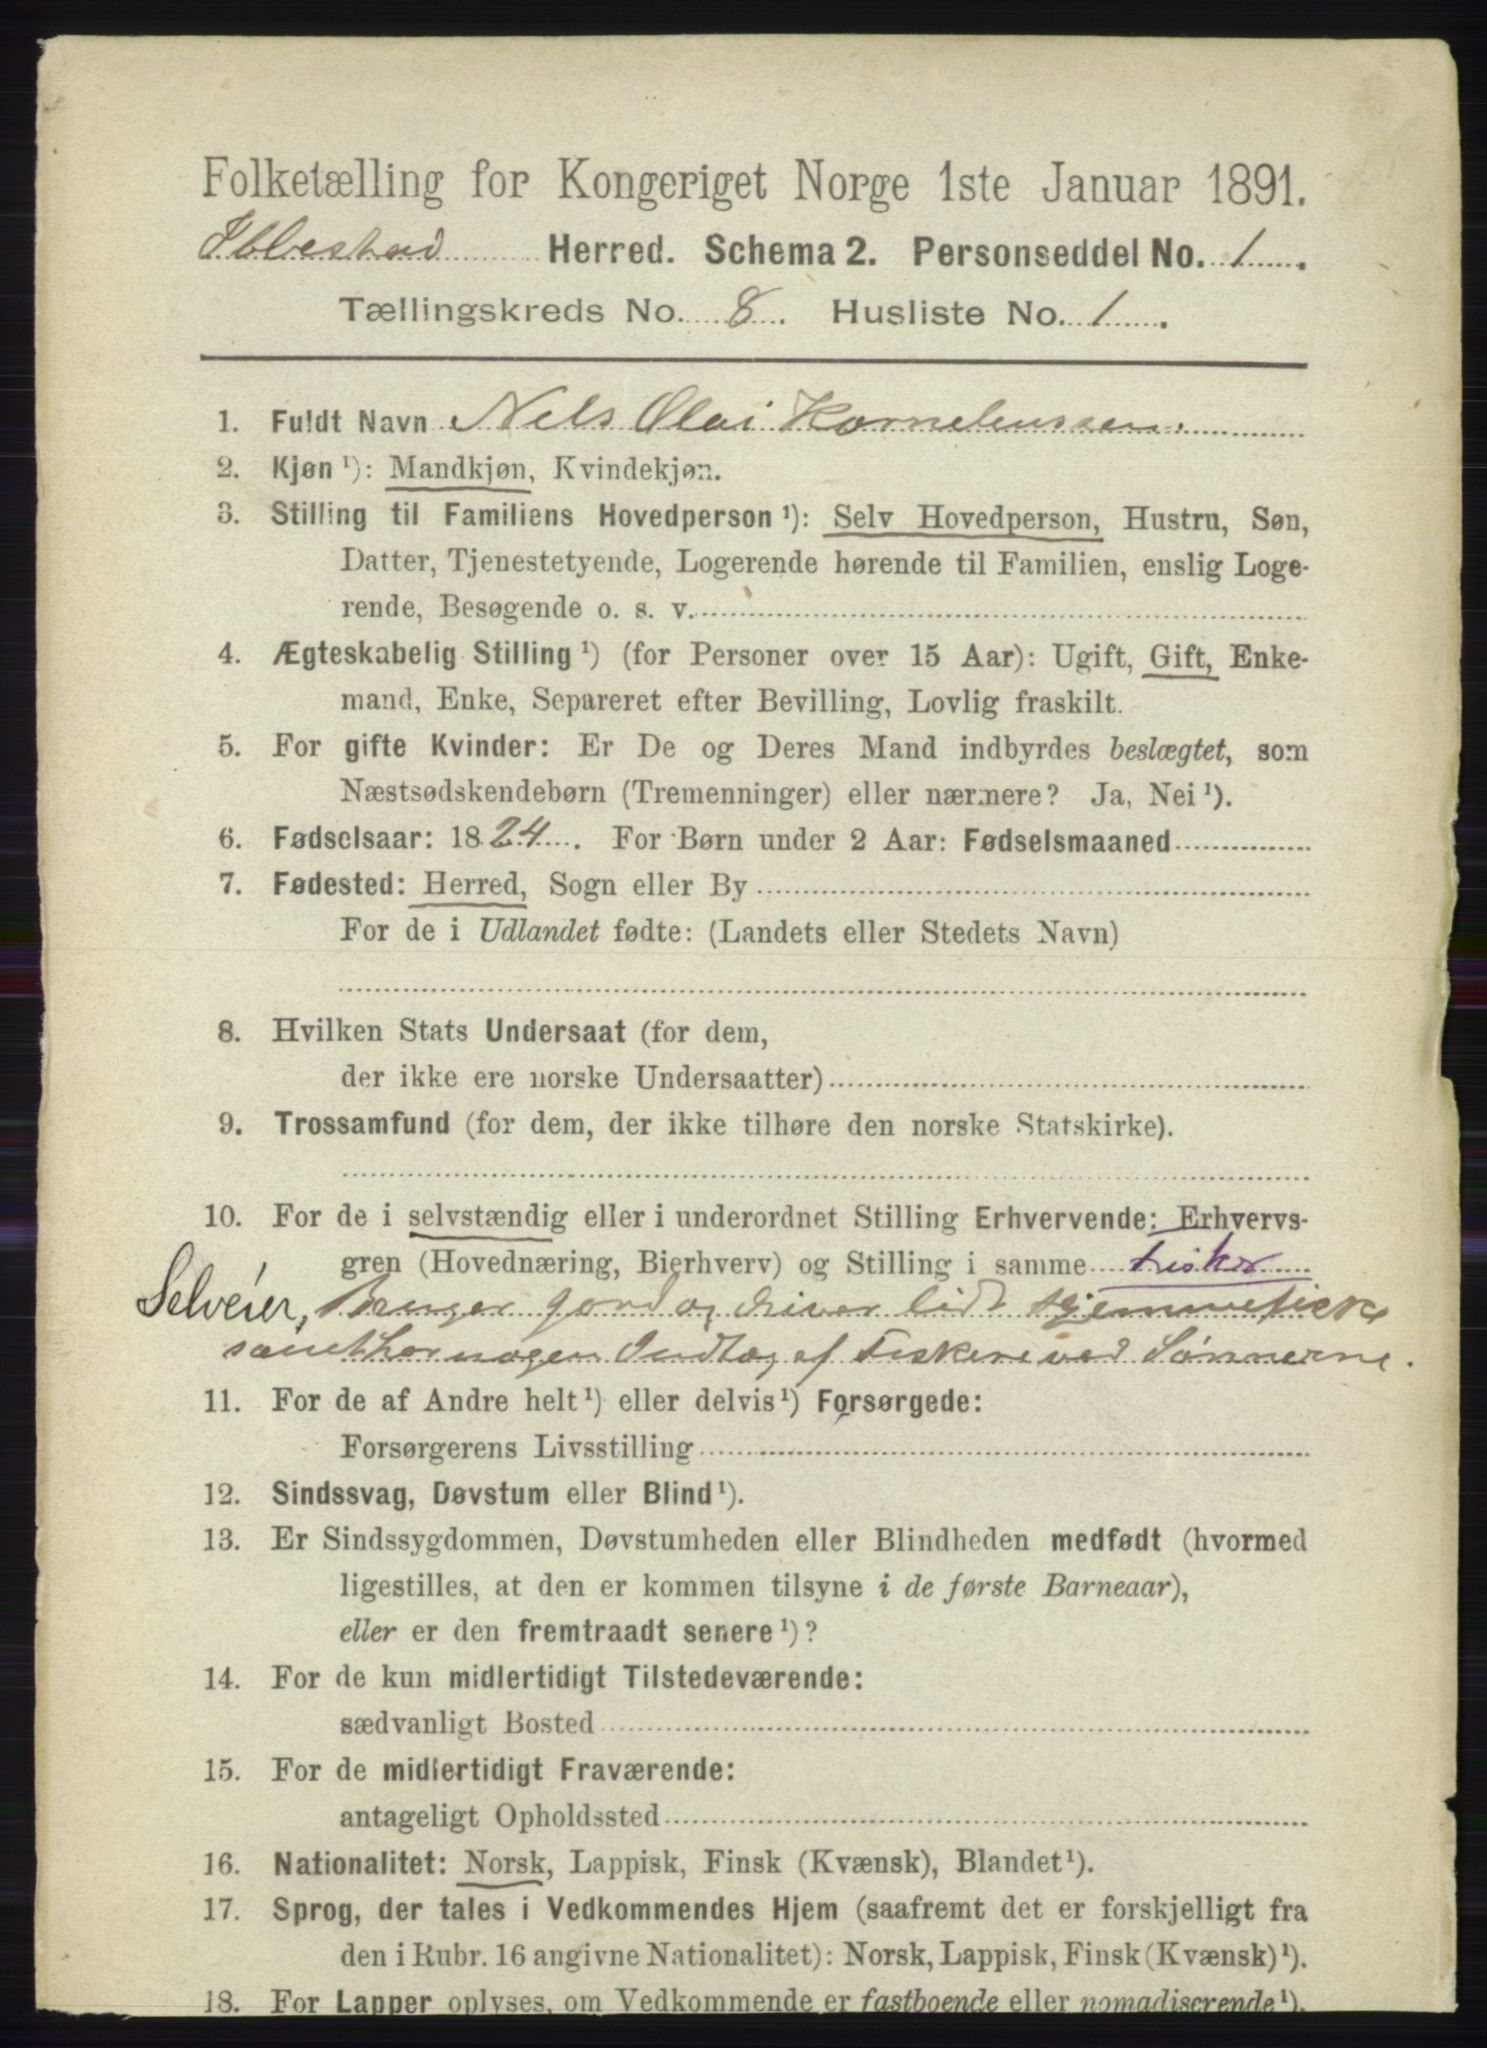 Folketælling for Kongeriget Norge 1ste Januar 1891.
Ibbestad Herred. Schema 2. Personseddel No. 1.
Tællingskreds No. 8. Husliste No. 1.
1. Fuldt Navn Nels Olai Korneliussen.
2. Kjøn ¹): Mandkjøn, Kvindekjøn.
3. Stilling til Familiens Hovedperson ¹): Selv Hovedperson, Hustru, Søn,
Datter, Tjenestetyende, Logerende hørende til Familien, enslig Loge-
rende, Besøgende o. s. v.
4. Ægteskabelig Stilling ¹) (for Personer over 15 Aar): Ugift, Gift, Enke-
mand, Enke, Separeret efter Bevilling, Lovlig fraskilt.
5. For gifte Kvinder: Er De og Deres Mand indbyrdes beslægtet, som
Næstsødskendebørn (Tremenninger) eller nærmere? Ja, Nei ¹).
6. Fødselsaar: 1824. For Børn under 2 Aar: Fødselsmaaned
7. Fødested: Herred, Sogn eller By
For de i Udlandet fødte: (Landets eller Stedets Navn)
8. Hvilken Stats Undersaat (for dem,
der ikke ere norske Undersaatter)
9. Trossamfund (for dem, der ikke tilhøre den norske Statskirke).
10. For de i selvstændig eller i underordnet Stilling Erhvervende: Erhvervs-
gren (Hovednæring, Bierhverv) og Stilling i samme fisker
Selveier, Bruger gord og driver lidt Hjemmefiske
samt har nogen Indtag af Fiskeri ved Sønnerne.
11. For de af Andre helt ¹) eller delvis ¹) Forsørgede:
Forsørgerens Livsstilling
12. Sindssvag, Døvstum eller Blind ¹).
13. Er Sindssygdommen, Døvstumheden eller Blindheden medfødt (hvormed
ligestilles, at den er kommen tilsyne i de første Barneaar),
eller er den fremtraadt senere ¹)?
14. For de kun midlertidigt Tilstedeværende:
sædvanligt Bosted
15. For de midlertidigt Fraværende:
antageligt Opholdssted
16. Nationalitet: Norsk, Lappisk, Finsk (Kvænsk), Blandet ¹).
17. Sprog, der tales i Vedkommendes Hjem (saafremt det er forskjelligt fra
den i Rubr. 16 angivne Nationalitet): Norsk, Lappisk, Finsk (Kvænsk) ¹).
18. For Lapper oplyses, om Vedkommende er fastboende eller nomadiserende ¹).